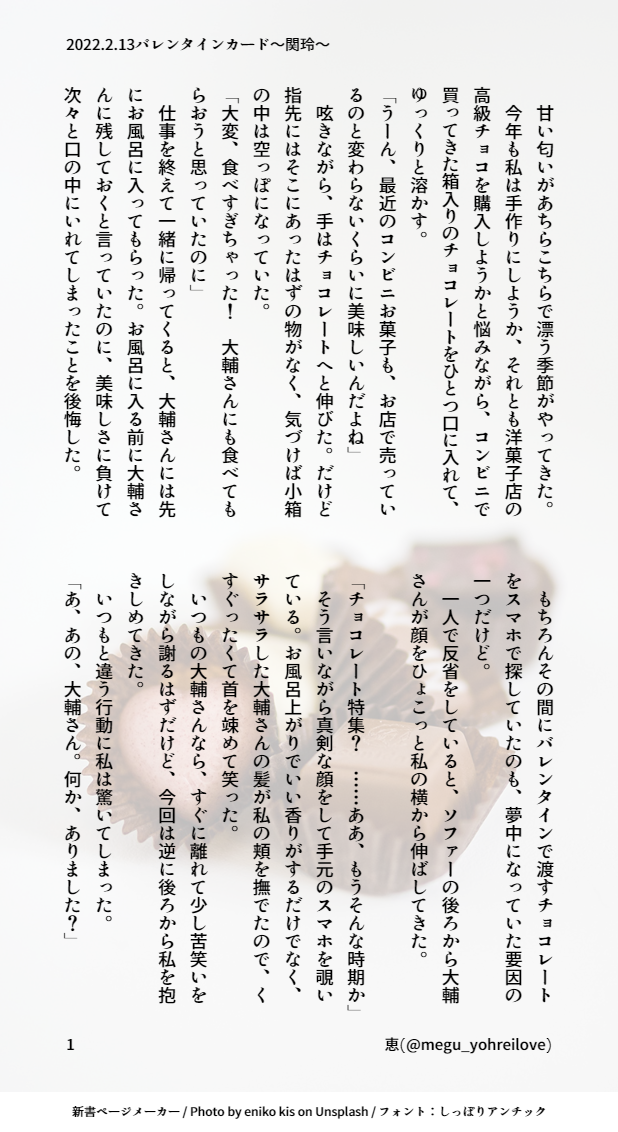 2022.2.13バレンタインカード～関玲～
甘い匂いがあちらこちらで漂う季節がやってきた。
今年も私は手作りにしようか、それとも洋菓子店の
高級チョコを購入しようかと悩みながら、コンビニで
買ってきた箱入りのチョコレートをひとつ口に入れて、
ゆっくりと溶かす。
「うーん、最近のコンビニお菓子も、お店で売ってい
るのと変わらないくらいに美味しいんだよね」
呟きながら、手はチョコレートへと伸びた。だけど
指先にはそこにあったはずの物がなく、気づけば小箱
の中は空っぽになっていた。
「大変、食べすぎちゃった！　大輔さんにも食べても
らおうと思っていたのに」
仕事を終えて一緒に帰ってくると、大輔さんには先
にお風呂に入ってもらった。お風呂に入る前に大輔さ
んに残しておくと言っていたのに、美味しさに負けて
次々と口の中にいれてしまったことを後悔した。
もちろんその間にバレンタインで渡すチョコレート
をスマホで探していたのも、夢中になっていた要因の
一つだけど。
一人で反省をしていると、ソファーの後ろから大輔
さんが顔をひょこっと私の横から伸ばしてきた。
「チョコレート特集？　……ああ、もうそんな時期か」
そう言いながら真剣な顔をして手元のスマホを覗い
ている。お風呂上がりでいい香りがするだけでなく、
サラサラした大輔さんの髪が私の頬を撫でたので、く
すぐったくて首を竦めて笑った。
いつもの大輔さんなら、すぐに離れて少し苦笑いを
しながら謝るはずだけど、今回は逆に後ろから私を抱
きしめてきた。
いつもと違う行動に私は驚いてしまった。
「あ、あの、大輔さん。何か、ありました？」
1
恵(@megu_yohreilove)
新書ページメーカー / Photo by eniko kis on Unsplash / フォント：しっぽりアンチック